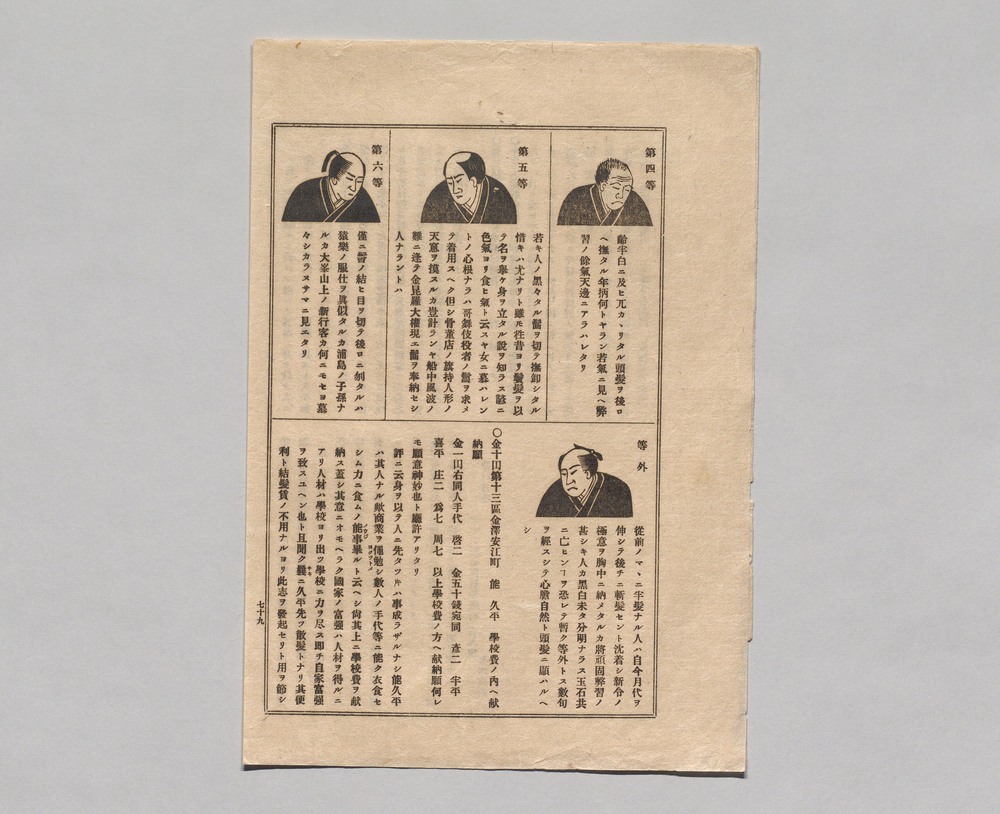 第四等
齡半白ニ及ヒ兀カヽリタル頭髮ヲ後ロ
ヘ撫タル年柄何トヤラン若氣ニ見ヘ弊
習ノ餘氣天邊ニアラハレタリ
第五等
若キ人ノ黑々タル鬚ヲ切テ撫卸シタル
惜キハ尤ナリト雖モ往昔ヨリ鬚髮ヲ以
テ名ヲ擧ケ身ヲ立タル説ヲ知ラス諺ニ
色氣ヨリ食ヒ氣ト云スヤ女ニ慕ハレン
トノ心根ナラハ哥舞伎役者ノ鬘ヲ求メ
テ着用スヘク但シ骨董店ノ旗持人形ノ
天窓ヲ摸スルカ豈計ランヤ船中風波ノ
難ニ逢テ金毘羅大權現エ鬚ヲ奉納セシ
人ナラントハ
第六等
僅ニ髻ノ結ヒ目ヲ切テ後ロニ刎タルハ
猿樂ノ服仕ヲ眞似タルカ浦島ノ子孫ナ
ルカ大峯山上ノ新行客カ何ニモセヨ墓
々シカラスサマニ見エタリ
等外
從前ノマヽニ半髮ナル人ハ自今月代ヲ
伸シテ後チニ斬髮セント沈着シ新令ノ
極意ヲ胸中ニ納メタルカ將頑固弊習ノ
甚シキ人カ黑白未タ分明ナラス玉石共
ニ亡ヒンヿヲ恐レテ暫ク等外トス數旬
ヲ經スシテ心膽自然ト頭髮ニ顯ハルヘ
シ
〇金十圓第十三區金澤安江町 能 久平 學校費ノ内ヘ獻
納願
金一圓右同人手代 啓二 金五十錢宛同 彦二 半平
喜平 庄二 爲七 周七 以上學校費ノ方ヘ獻納願何レ
モ願意神妙也ト廳許アリタリ
評ニ云身ヲ以テ人ニ先タツ片ハ事成ラザルナシ能久平
ハ其人ナル歟商業ヲ僶勉シ數人ノ手代等ニ能ク衣食セ
シム力ニ食ムノ能事畢ルト云ヘシ尚其上ニ學校費ヲ獻
納ス蓋シ其意ニオモヘラク國家ノ富强ハ人材ヲ得ルニ
アリ人材ハ學校ヨリ出ツ學校ニ力ヲ尽ス即チ自家富强
ヲ致スユヘン也ト且聞ク曩ニ久平先ツ散髮トナリ其便
利ト結髮賃ノ不用ナルヨリ此志ヲ發起セリト用ヲ節シ
七十九